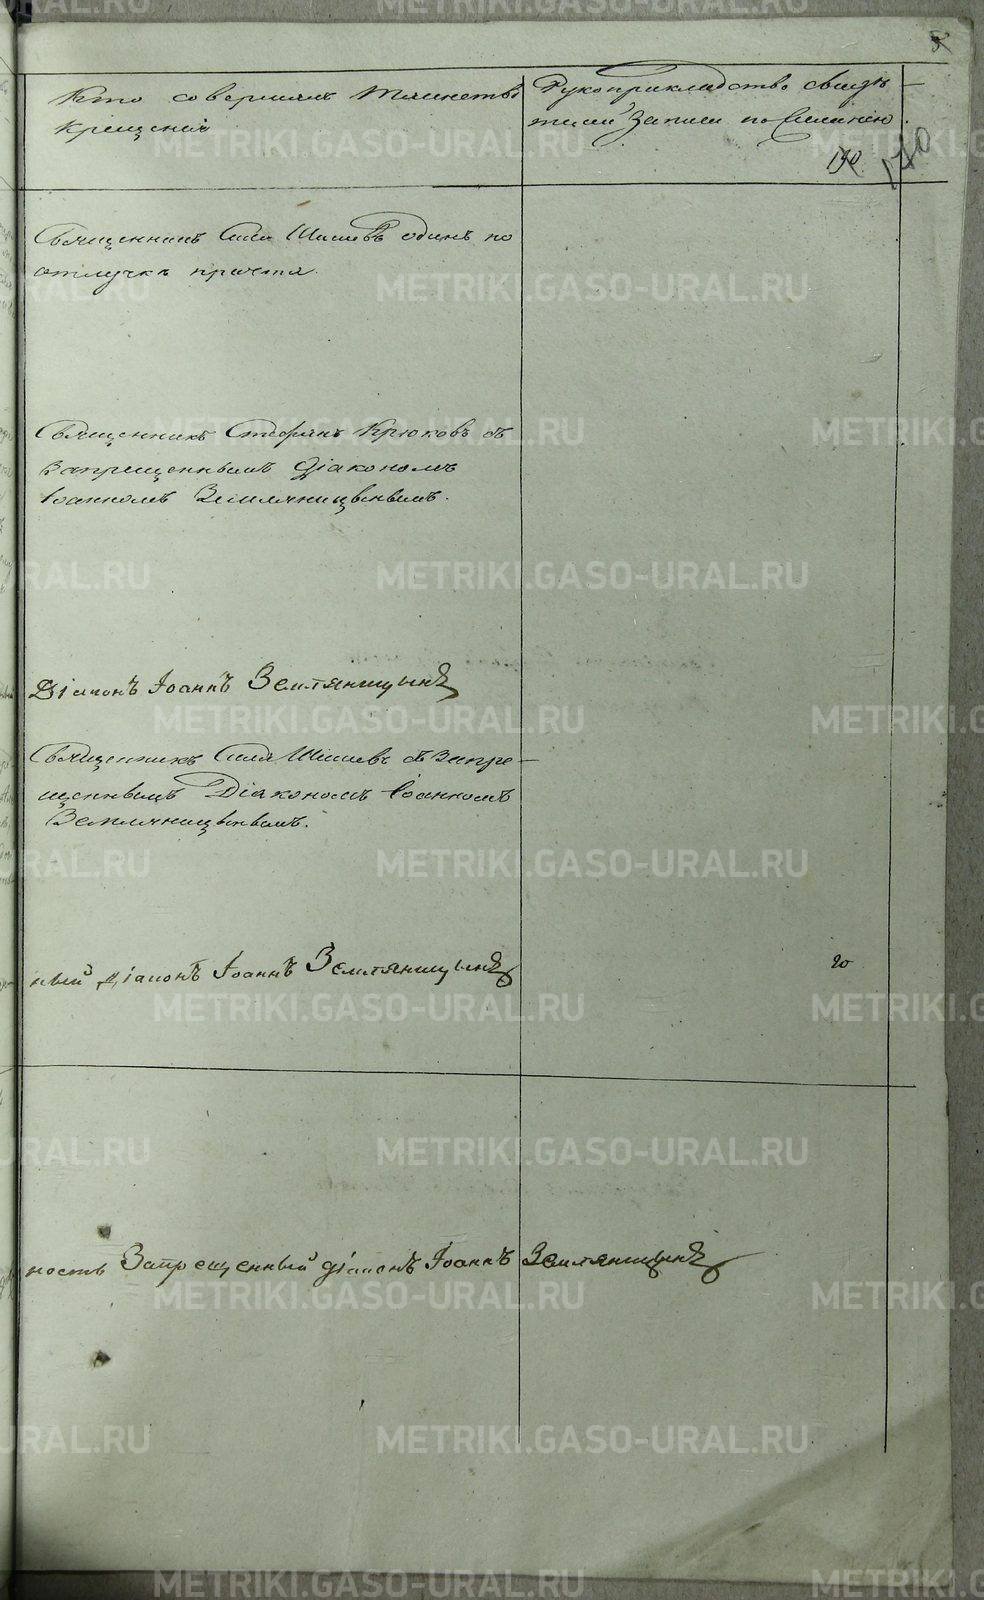 Кто совершалъ таинство
крещенія
Рукоприкладство свидѣ-
телей записи по желанію
190.
120
Священникъ Сила Шишевъ одинъ по
отлучкѣ причта.
Священникъ Стефанъ Крюковъ съ
запрещеннымъ Діакономъ
Іоанномъ Земляницынымъ.
Діаконъ Іоаннъ Земляницынъ
Священникъ Сила Шишевъ съ запре-
щеннымъ Діакономъ Іоанномъ
Земляницынымъ.
ный діаконъ Іоаннъ Земляницынъ
20
ность Запрещенный діаконъ Іоаннъ Земляницынъ
METRIKI.GASO-URAL.RU